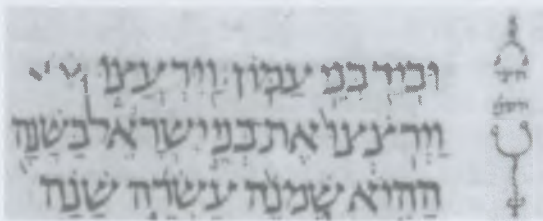 וּבְיַד בְּנֵי עַמּוֹן׃ וַיִּרְעֲצוּ
וַיְרֹצְצוּ אֶת בְּנֵי יִשְׂרָאֵל בַּשָּׁנָה
הַהִיא שְׁמֹנֶה עֶשְׂרֵה שָׁנָה